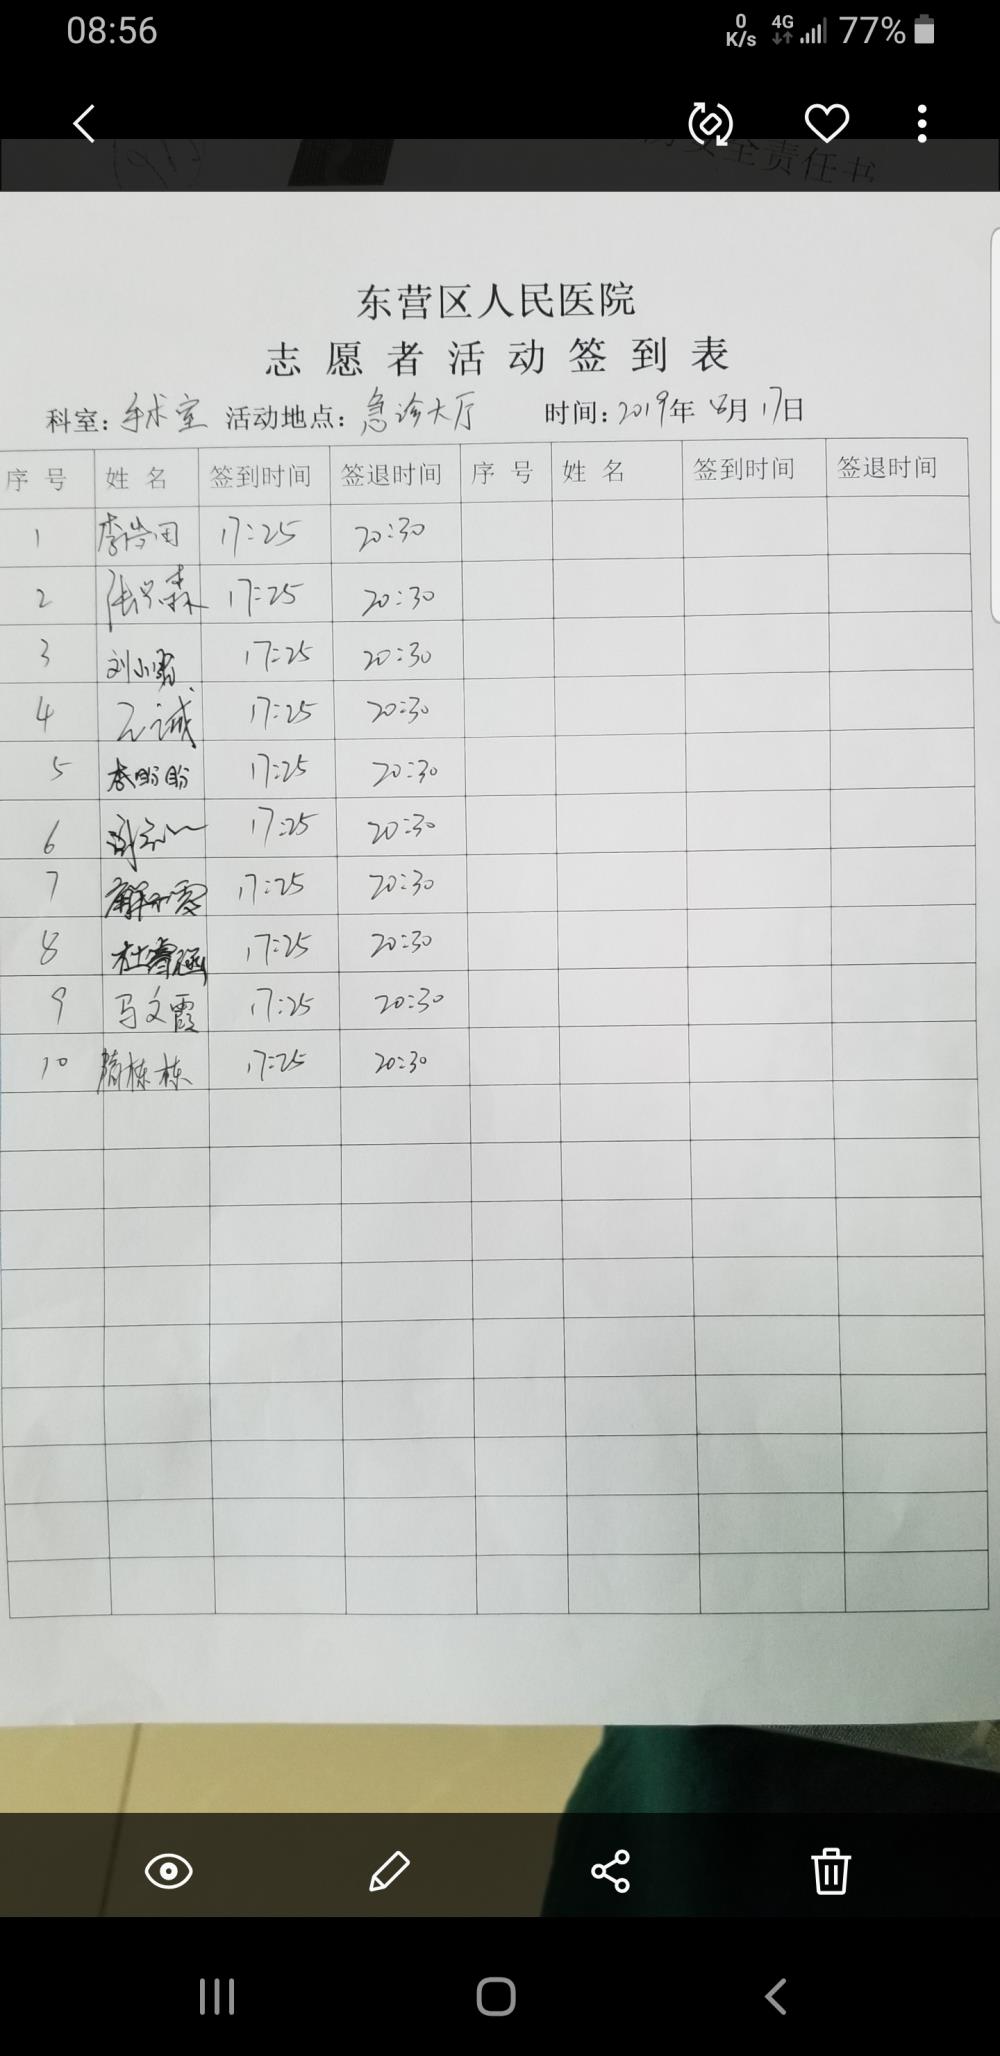 08:56
0 K/s 4G 77%
安全责任书
东营区人民医院
志愿者活动签到表
科室：手术室 活动地点：急诊大厅 时间：2019年8月17日
序号 姓名 签到时间 签退时间 序号 姓名 签到时间 签退时间
1 17:25 20:30
2 17:25 20:30
3 刘小 17:25 20:30
4 诚 17:25 20:30
5 李盼盼 17:25 20:30
6 17:25 20:30
7 17:25 20:30
8 杜睿涵 17:25 20:30
9 马文霞 17:25 20:30
10 栋栋 17:25 20:30